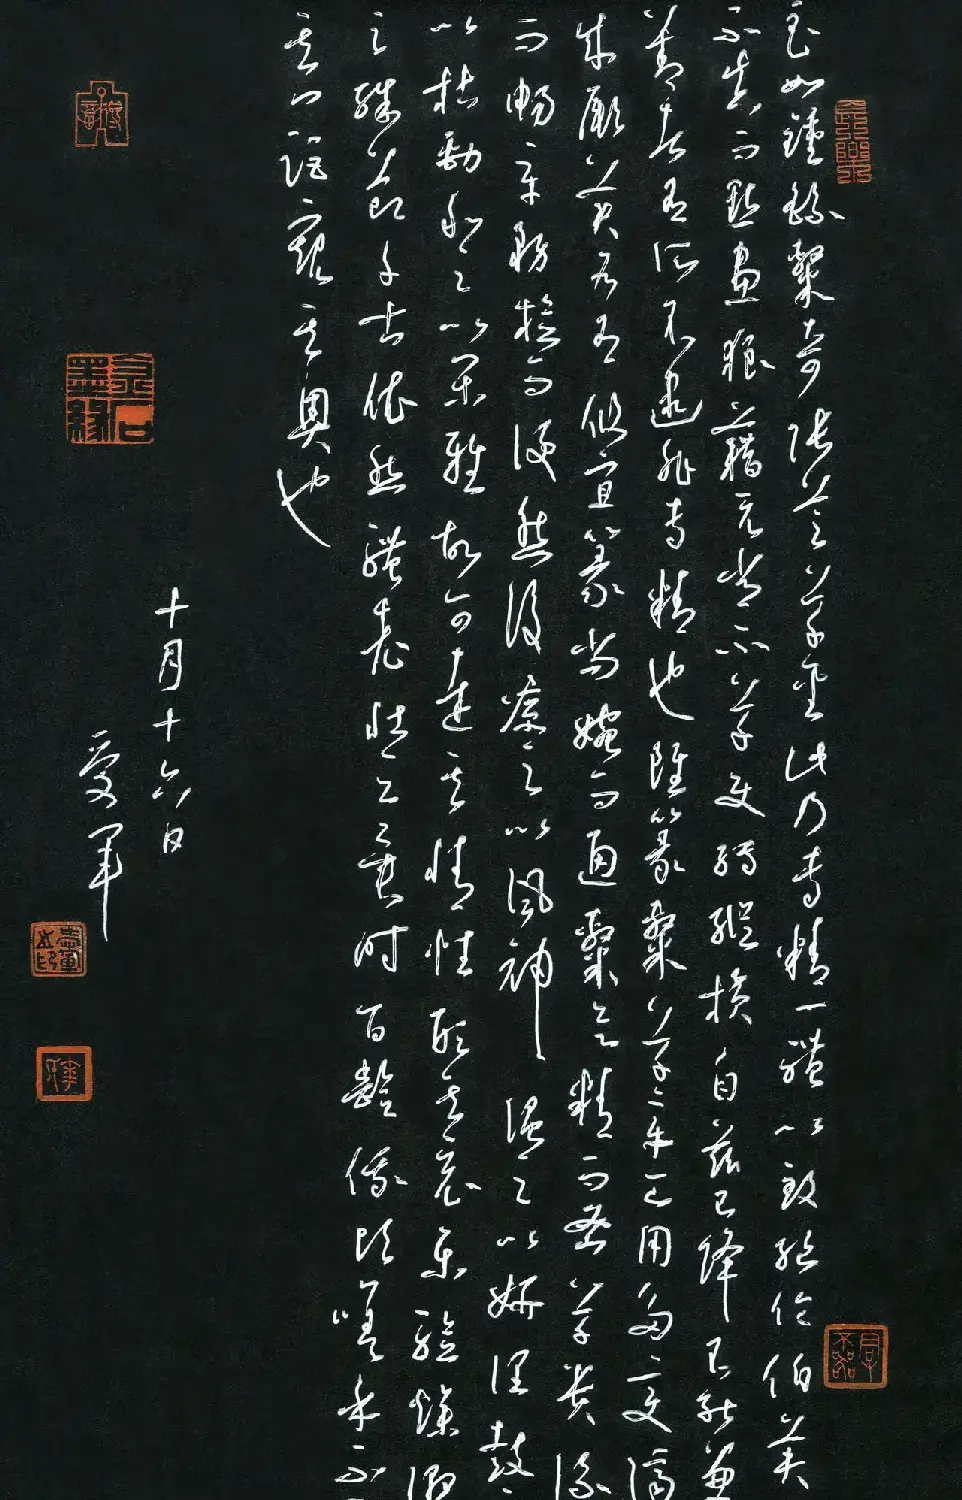 至如鍾繇隸奇張芝草聖此乃專精一體以致絕倫伯英
不真而點畫狼藉元常不草使轉縱橫自茲已降不能兼
善者有所不逮非專精也雖篆隸草章工用多變濟
成厥美各有攸宜篆尚婉而通隸欲精而密草貴流
而暢章務檢而便然後凜之以風神溫之以妍潤鼓之
以枯勁和之以閑雅故可達其情性形其哀樂驗燥濕
之殊節千古依然體老壯之異時百齡俄頃嗟乎不
其門詎窺其奧也
十月十六日
爱军
金石墨緣